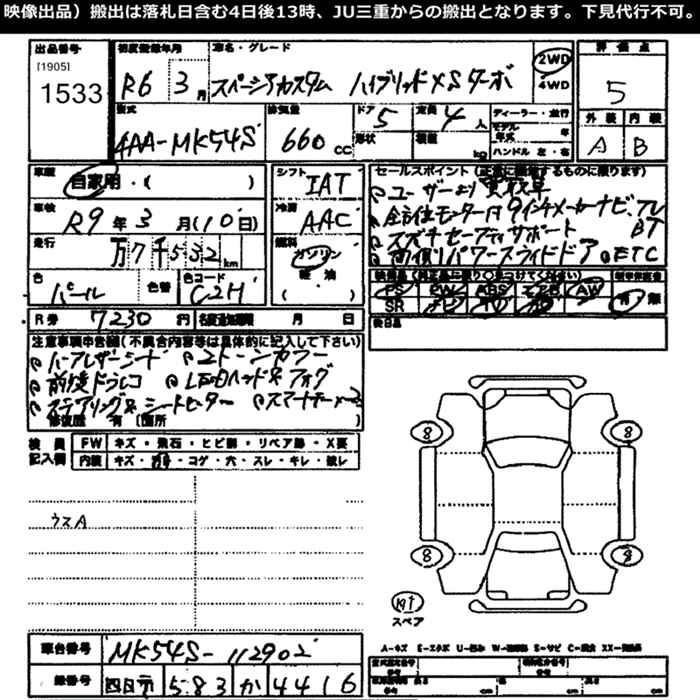 映像出品）搬出は落札日含む4日後13時、JU三重からの搬出となります。下見代行不可。
出品番号
[1905]
1533
初度登録年月
R6 3月
車名・グレード
スペーシアカスタム ハイブリッドXSターボ
2WD
4WD
評価点
5
外装 内装
A B
型式
4AA-MK54S
排気量
660 cc
ドア 5
形状
定員 4人
積載 kg
ディーラー・並行
モデル年式 年
ハンドル 左・右
車歴
自家用・( )
車検
R9年3月(10日)
走行
万7千532km
色
パール
色替
色コード
C2H
シフト
IAT
冷房
AAC
燃料
ガソリン
軽油
( )
セールスポイント(正常に機能するものに限ります)
ユーザーより買取車
全方位モニター付9インチメーカーナビ、TV
BT
スズキセーフティサポート
両側パワースライドドア ETC
PS PW ABS エアB AW
SR ナビ TV
有・無
後日品
R券 7230円
月 日
注意事項申告欄(不具合内容等は具体的に記入して下さい)
ハーフレザーシート 2トーンカラー
前後ドラレコ LEDヘッド&フォグ
ステアリング&シートヒーター
修復歴 有 (箇所 )
検員記入欄
FW キズ・飛石・ヒビ割・リペア跡・X要
内装 キズ・汚れ・コゲ・穴・スレ・キレ・破レ
ウスA
8 8
8 8
スペア
A-キズ E-エクボ U-凹み W-補修跡 S-サビ C-腐食 XX-交換済
車台番号
MK54S-112902
登録番号
四日市 583 か 4416
cm cm cm